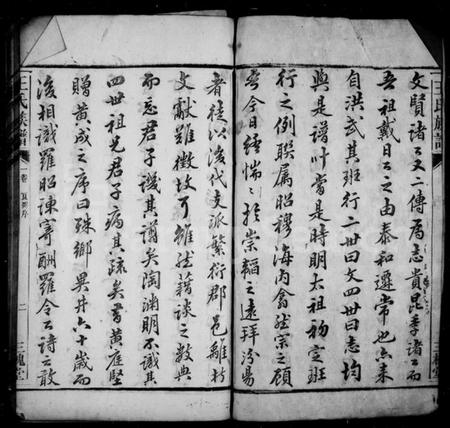 文賢諸公又二傳為志貴昆季諸公而
吾祖戴日公之由泰和遷常也亦未
自洪武其班行二世曰文四世曰志均
與是譜叶當是時明太祖初定班
行之例聯屬昭穆海內翕然宗之顧
今日惴惴於崇韜之遠拜汾陽
者徒以後代支派繁衍郡邑雖
文獻難徵故可雖然籍談之數典
而忘君子譏其譜矣陶淵明不識其
四世祖先君子病其疏矣昔黃庭堅
贈黃成之序曰殊鄉異井六十歲而
後相識羅昭諫寄酬羅令公詩之敢
王氏族譜
王氏族譜
卷
二
三槐堂
三槐堂